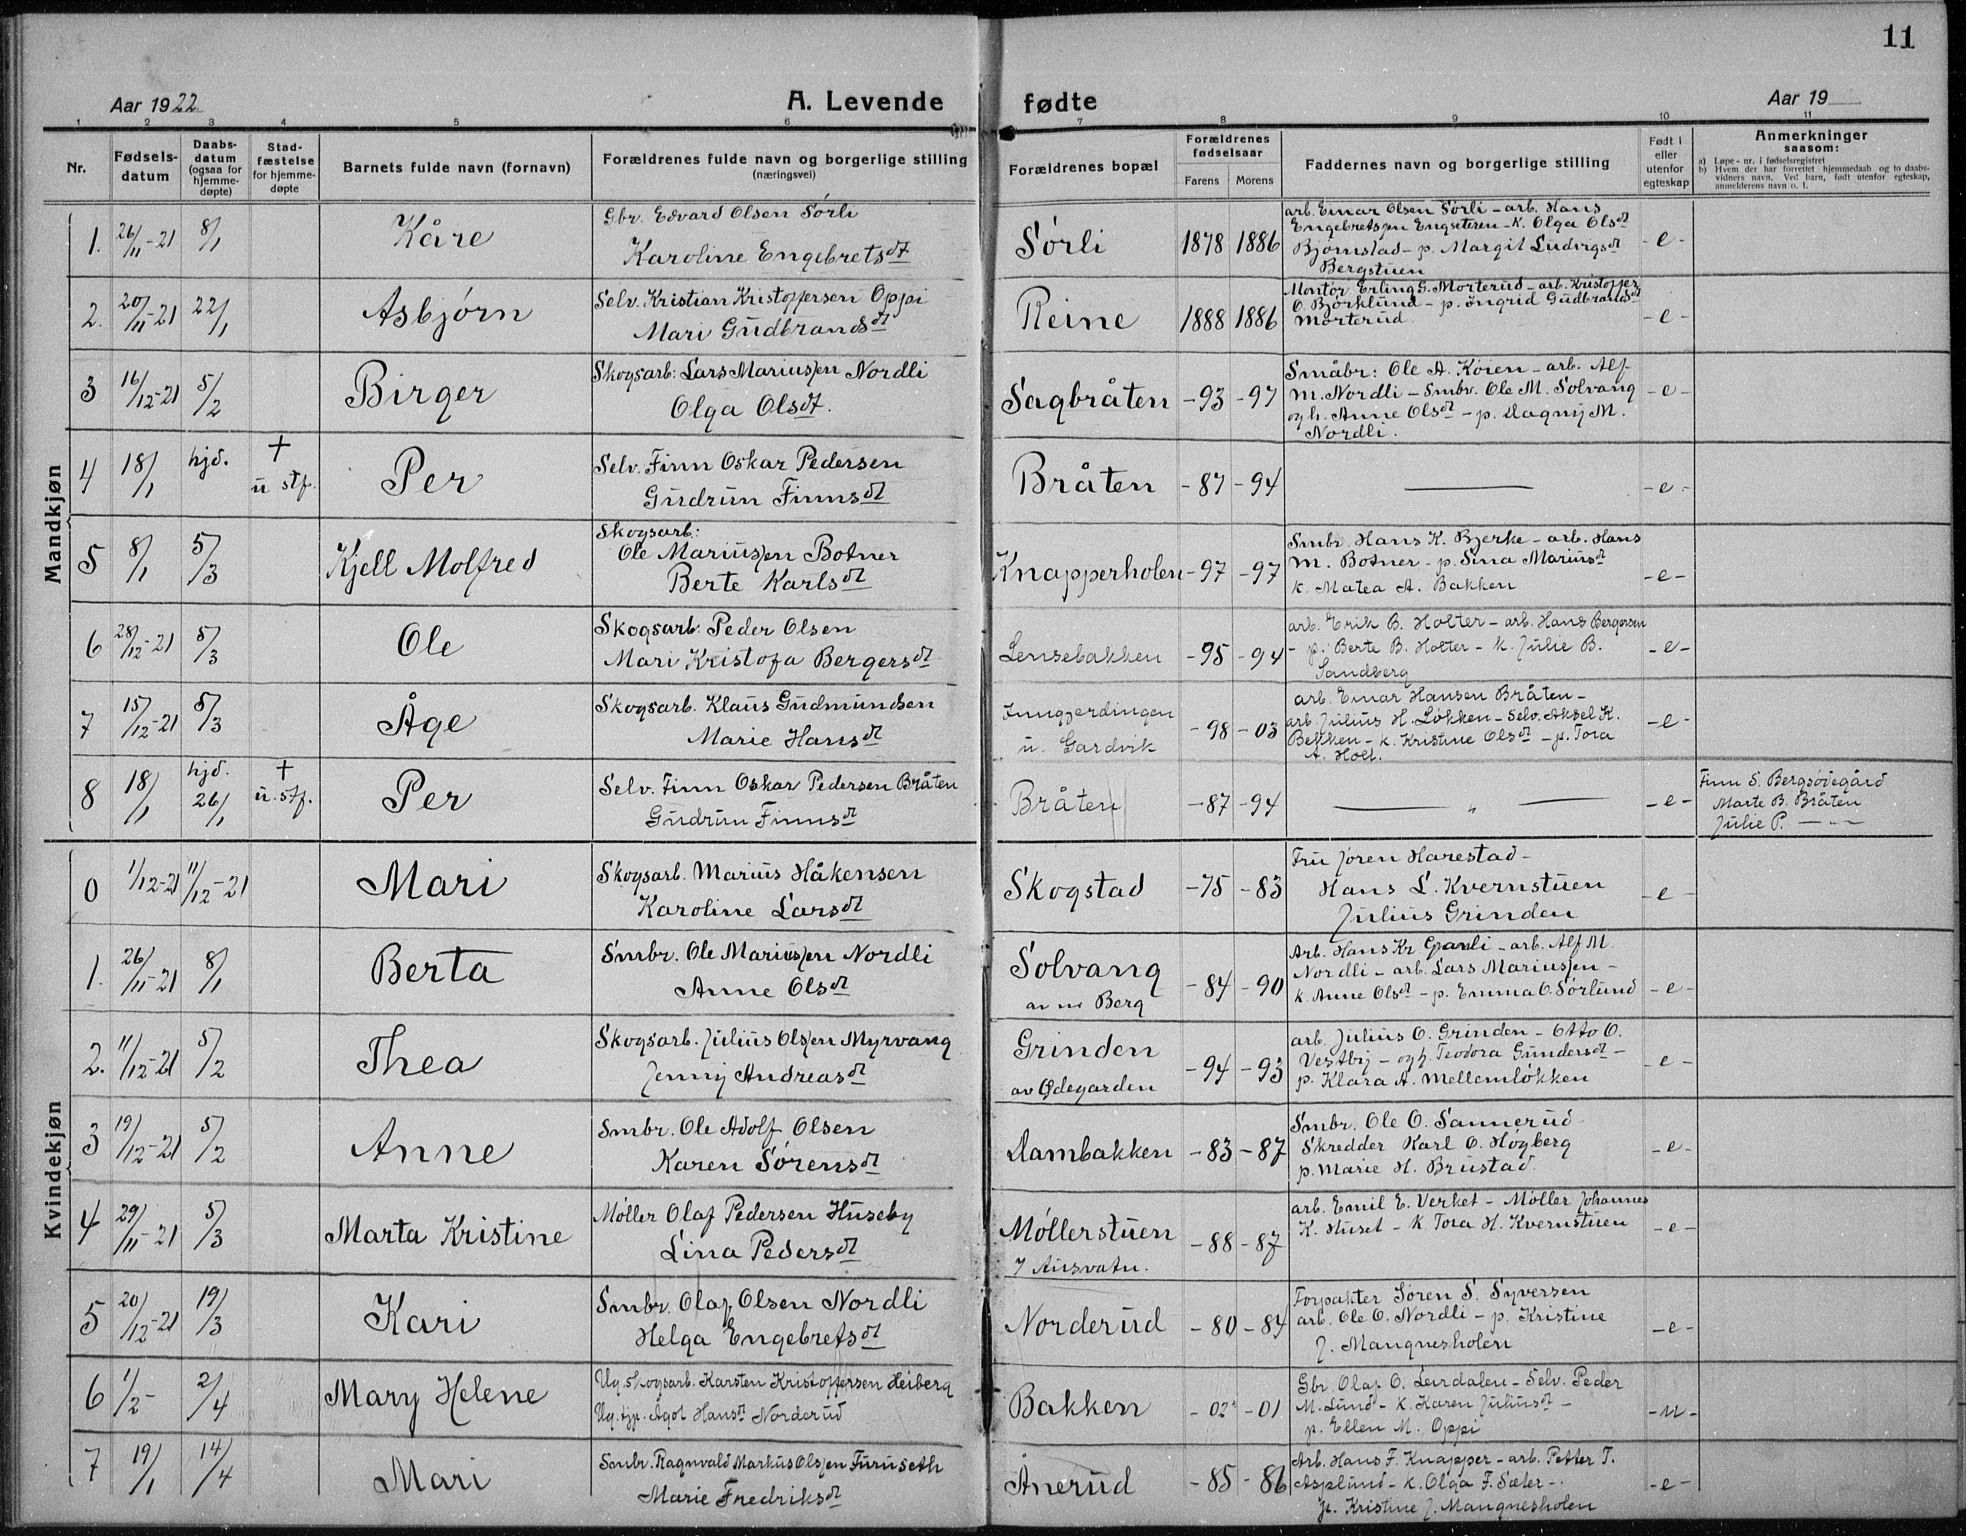 11
Aar 1922 A. Levende fødte Aar 19
1 2 3 4 5 6 7 8 9 10 11
Nr. Fødsels-datum Daabs-datum (ogsaa for hjemme-døpte) Stad-fæstelse for hjemme-døpte Barnets fulde navn (fornavn) Forældrenes fulde navn og borgerlige stilling (næringsvei) Forældrenes bopæl Forældrenes fødselsaar Farens Morens Faddernes navn og borgerlige stilling Født i eller utenfor egteskap Anmerkninger saasom:
a) Løpe-nr. i fødselsregistret
b) Hvem der har forrettet hjemmedaab og to daabs-vidners navn. Ved barn, født utenfor egteskap, anmelderens navn o. l.
Mandkjøn
1. 26/11-21 8/1 Kåre Gbr. Edvard Olsen Sørli
Karoline Engebretsdt Sørli 1878 1886 arb. Einar Olsen Sørli - arb. Hans
Engebretsen Engseteren - k. Olga Olsdt
Bjørnstad - p. Margit Ludvigsdt
Bergstuen - e -
2. 20/11-21 22/1 Asbjørn Selv. Kristian Kristoffersen Oppi
Mari Gudbrandsdt Reine 1888 1886 Montør Erling G. Morterud - arb. Kristoffer
O. Bjørklund - p. Ingrid Gudbrandsdt
Morterud. - e -
3 16/12-21 5/2 Birger Skogsarb: Lars Mariussen Nordli
Olga Olsdt. Sagbråten -93 -97 Småbr: Ole A. Koien - arb. Alf
M. Nordli - Smbr. Ole M. Solvang
og h. Anne Olsdt - p. Dagny M.
Nordli. - e -
4 18/1 hjd. + u stf. Per Selv. Finn Oskar Pedersen
Gudrun Finnsdt Bråten -87 -94 — - e -
5 8/1 5/3 Kjell Molfred Skogsarb:
Ole Mariussen Botner
Berte Karlsdt Knapperholen -97 -97 Smbr. Hans K. Bjerke - arb. Hans
M. Botner - p. Sina Mariusdt
k. Matea A. Bakken - e -
6 28/12-21 5/3 Ole Skogsarb: Peder Olsen
Mari Kristofa Bergersdt Lensebakken -95 -94 arb. Erik B. Holter - arb. Hans Bergersen
- p. Berte B. Holter - k. Julie B.
Sandberg - e -
7 15/12-21 5/3 Åge Skogsarb. Klaus Gudmundsen
Marie Hansdt Inngjerdingen
u. Gardvik -98 -03 arb. Einar Hansen Bråten -
arb. Julius H. Løkken - Selv. Aksel K.
Bekken - k. Kristine Olsdt - p. Tora
A. Holt. - e -
8 18/1 hjd. 26/1 + u. stf. Per Selv. Finn Oskar Pedersen Bråten
Gudrun Finnsdt Bråten -87 -94 — " — - e - Finn S. Bergsødegård
Marte B. Bråten
Julie P. — " —
Kvindekjøn
0 1/12-21 11/12-21 Mari Skogsarb. Marius Håkensen
Karoline Larsdt Skogstad -75 -83 Fru Jøren Harestad -
Hans L. Kvernstuen
Julius Grinden - e -
1. 26/11-21 8/1 Berta Smbr. Ole Mariussen Nordli
Anne Olsdt Solvang
av Berg -84 -90 Arb. Hans Kr. - arb. Alf M.
Nordli - arb. Lars Mariussen -
k. Anne Olsdt - p. Emma O. Sørlund - e -
2. 11/12-21 5/2 Thea Skogsarb. Julius Olsen Myrvang
Jenny Andreasdt Grinden
av Ødegarden -94 -93 arb. Julius O. Grinden - Otto O.
Vestby - og h. Teodora Gundersdt -
p. Klara A. Mellemløkken - e -
3 19/12-21 5/2 Anne Smbr. Ole Adolf Olsen
Karen Sørensdt Dambakken -83 -87 Smbr. Ole O. Sannerud
Skredder Karl O. Høgberg
p. Marie H. Brustad. - e -
4 29/11-21 5/3 Marta Kristine Møller Olaf Pedersen Huseby
Lina Pedersdt Møllerstuen
-88 -87 arb. Emil E. Verket - Møller Johannes
K. Huset - k Tora H. Kvernstuen - e -
5 20/12-21 19/3 Kari Smbr. Olaf Olsen Nordli
Helga Engebretsdt Norderud -80 -84 Forpakter Søren S. Syversen
arb. Ole O. Nordli - p. Kristine
J. Mangnesholen - e -
6 1/2- 2/4 Mary Helene Ug. skogsarb. Karsten Kristoffersen Heiberg
Ug. tjp. Agot Hansdt Norderud Bakken -02 -01 Gbr. Olaf O. Leirdalen - Selv. Peder
M. Lund - k. Karen Juliusdt -
p. Ellen M. Oppi - u -
7 19/1 14/4 Mari Smbr. Ragnvald Markus Olsen Furuseth
Marie Fredriksdt Ånerud -85 -86 Arb. Hans F. Knapper - arb. Petter T.
Asplund - k. Olga F. Sæter -
p. Kristine J. Mangnesholen - e -